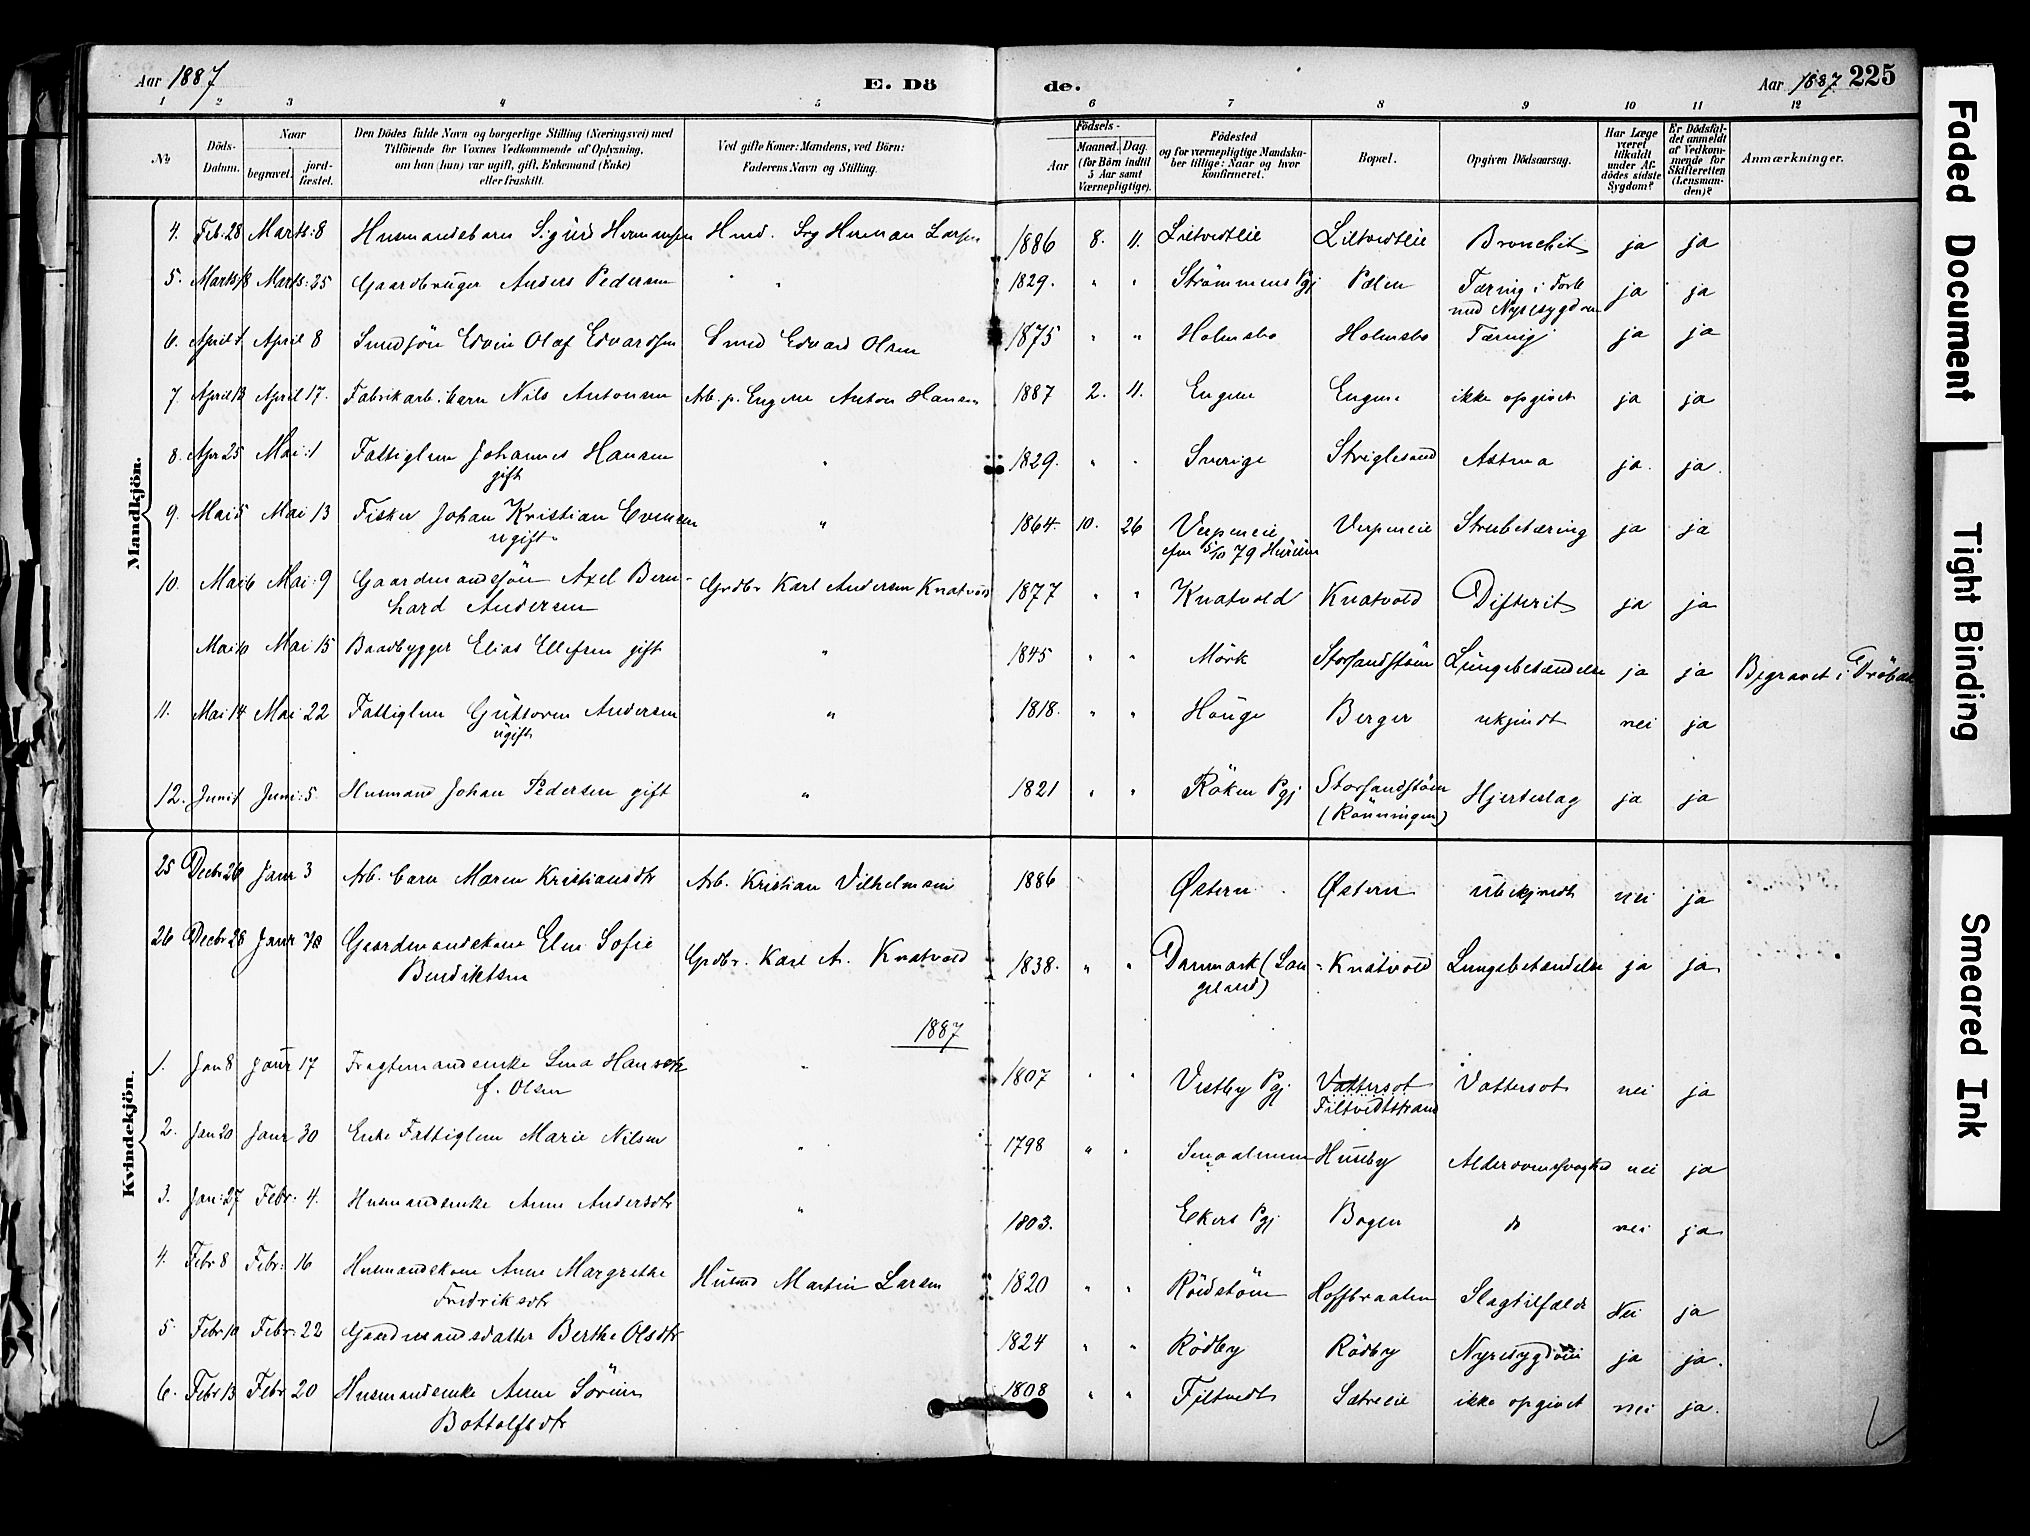 Aar 1887 E. Dö de. Aar 1887 225
1 2 3 4 5 6 7 8 9 10 11 12
No
Döds-Datum.
Naar
begravet.
jord-fæstet.
Den Dödes fulde Navn og borgerlige Stilling (Næringsvei) med
Tilföiende for Voxnes Vedkommende af Oplysning,
om han (hun) var ugift, gift, Enkemand (Enke)
eller fraskilt.
Ved gifte Koner: Mandens, ved Börn:
Faderens Navn og Stilling.
Födsels-
Aar
Maaned. Dag.
(for Börn indtil
5 Aar samt
Værnepligtige).
Födested
og for værnepligtige Mandska-
ber tillige: Naar og hvor
konfirmeret.
Bopæl.
Opgiven Dödsaarsag.
Har Læge
været
tilkaldt
under Af-
dödes sidste
Sygdom?
Er Dödsfal-
det anmeldt
af Vedkom-
mende for
Skifteretten
(Lensman-
den)?
Anmærkninger.
Mandkjön.
4. Feb: 28 Marts: 8 Husmandsbarn Sigurd Hermansen Hmd. Herman Larsen 1886 8. 11. Liltvedteie Liltvedteie Bronchit ja ja
5. Marts 18 Marts: 25 Gaardbruger Anders Pedersen " 1829. " " Strömmens Pgj Pælen Tæring i Forb. ja ja
med Nyresygdom
6. April 1 April 8 Smedsön Edvin Olaf Edvardsen Smed Edvard Olsen 1875 " " Holmsbo Holmsbo Tæring ja ja
7. April 13 April 17. Fabrikarb. barn Nils Antonsen Arb. p. Engene Anton Hansen 1887 2. 11. Engene Engene ikke opgivet ja ja
8. Apr 25 Mai: 1 Fattiglem Johannes Hansen " 1829. " " Sverige Striglesund Astma ja. ja.
gift
9. Mai 5 Mai 13 Fisker Johan Kristian Evensen " 1864. 10. 26 Verpeneie Verpeneie Strubetæring ja ja
ugift. 5/10 79 Hurum
10. Mai 6 Mai: 9 Gaardmandssön Axel Bern- Grdbr Karl Andersen Knatvold 1877 " " Knatvold Knatvold Difterit ja ja
hard Andersen
Mai 10 Mai 15 Baadbygger Elias Ellefsen gift " 1845 " " Mörk Storsandstöen Lungebetændelse ja ja Begravet i Dröbak
11. Mai 14 Mai 22 Fattiglem Guttoren Andersen " 1818. " " Hauge Berger ukjendt nei ja
ugift
12. Juni 1 Juni: 5. Husmand Johan Pedersen gift " 1821 " " Röken Pgj Storsandstöen Hjerteslag ja ja
(Rönningen)
Kvindekjön.
25 Decbr 26 Janr 3 Arb. barn Maren Kristiansdtr Arb. Kristian Vilhelmsen 1886 Østern Østern ubekjendt nei ja
26 Decbr 28 Janr Gaardmandskone Elen Sofie Grdbr. Karl A. Knatvold 1838. " " Danmark (Lan- Knatvold Lungebetændelse ja ja
Bendiktsen geland)
1887
1. Jan 8 Janr 17 Fragtemandsenke Hansdtr " 1807 " " Vestby Pgj Vattersot Vattersot nei ja
f. Olsen Filtvedtstrand
2. Jan 20 Janr 30 Enke Fattiglem Marie Nilsen " 1798 " " Smaalenene Husby Alderdomssvaghed nei ja
3. Jan: 27 Febr: 4. Husmandsenke Anne Andersdtr " 1803. Ekers Pgj Bogen do nei ja
4. Febr 8 Febr: 16 Husmandskone Anne Margrethe Husmd Martin Larsen 1820 " " Rödstöen Hoffbraaten Slagtilfælde Nei ja
Fredriksdtr
5. Febr 10 Febr: 22 Gaardmandsdatter Berthe Olsdtr 1824 " " Rödby Rödby Nyresygdom ja ja.
6. Febr 13 Febr 20 Husmandsenke Anne Sörine 1808 " " Filtvedt Sætreeie ikke opgivet nei ja.
Bottolfsdtr
Faded Document
Tight Binding
Smeared Ink